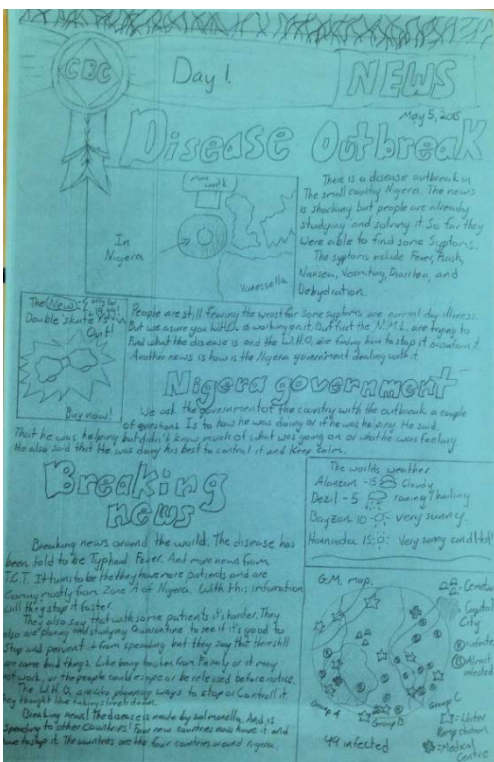 CBC
Day 1
NEWS
May 5, 2015
Disease Outbreak
There is a disease outbreak in
The small country Nigera. The news
is shocking but people are already
studying and solving it. So far they
were able to find some Syptons.
The syptons include Fever, Rash,
Nausea, Vomiting, Diarrlea, and
Debydration.
In
Nigera
Vanessella
The (New)
Double skate
Out!
Buy now!
People are still fearing the worst for some syptons are normal day illness.
But we assure you W.H.O. is working on it. But first the N.M.L. are trying to
Find what the disease is and the W.H.O. are finding how to stop it or contain it.
Another news is how is the Nigera government dealing with it.
Nigera government
We ask the government of the country with the outbreak a couple
of questions. Is to how he was doing or if he was helping. He said
That he was helping but didn't know much of what was going on or what he was feeling
He also said that He was doing his best to control it and Keep calm.
Breaking
news
Breaking news around the world. The disease has
been told to be Typhoid Fever. And more news from
I.C.T. It turns to be the they have more patients and are
Coming mostly from Zone A of Nigera. With this information
will they stop it faster.
They also say that with some patients it's harder. They
also are planing and studying Quarantine to see if it's good to
Stop and prevent it from spending but they say that there still
are some bad things. Like being taken from Family or it may
not work, or the people could escape or be released before notice.
The W.H.O. are also planning ways to stop or Controll it
they thought like taking
Breaking news! The disease is made by salmonella. And is
Spending to other Countries! Four new countries now have it and
have to stop it. The countries are the four countries around nigera.
The worlds weather
-15 Cloudy
Dezil -5 raining/hailing
Bayzon 10 very sunny.
15 very sunny
G.M. map.
Capital
City
infected
Almost
infected
Water
Medical
Centre
Group A
Group B
Group C
49 infected